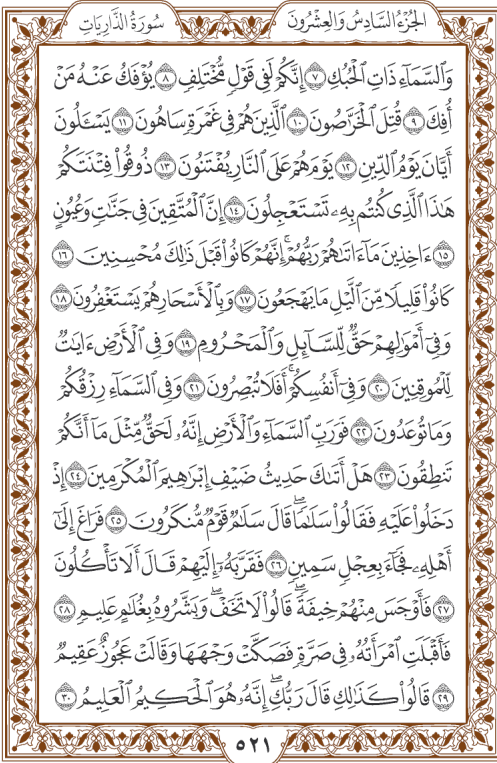 الجزء السادس والعشرون
سورة الذاريات
وَالسَّمَاءِ ذَاتِ الْحُبُكِ ٧ إِنَّكُمْ لَفِي قَوْلٍ مُّخْتَلِفٍ ٨ يُؤْفَكُ عَنْهُ مَنْ
أُفِكَ ٩ قُتِلَ الْخَرَّاصُونَ ١٠ الَّذِينَ هُمْ فِي غَمْرَةٍ سَاهُونَ ١١ يَسْـَٔلُونَ
أَيَّانَ يَوْمُ الدِّينِ ١٢ يَوْمَ هُمْ عَلَى النَّارِ يُفْتَنُونَ ١٣ ذُوقُوا فِتْنَتَكُمْ
هَٰذَا الَّذِي كُنتُم بِهِ تَسْتَعْجِلُونَ ١٤ إِنَّ الْمُتَّقِينَ فِي جَنَّاتٍ وَعُيُونٍ
١٥ ءَاخِذِينَ مَا ءَاتَىٰهُمْ رَبُّهُمْ ۚ إِنَّهُمْ كَانُوا قَبْلَ ذَٰلِكَ مُحْسِنِينَ ١٦
كَانُوا قَلِيلًا مِّنَ الَّيْلِ مَا يَهْجَعُونَ ١٧ وَبِالْأَسْحَارِ هُمْ يَسْتَغْفِرُونَ ١٨
وَفِي أَمْوَٰلِهِمْ حَقٌّ لِّلسَّائِلِ وَالْمَحْرُومِ ١٩ وَفِي الْأَرْضِ ءَايَٰتٌ
لِّلْمُوقِنِينَ ٢٠ وَفِي أَنفُسِكُمْ ۚ أَفَلَا تُبْصِرُونَ ٢١ وَفِي السَّمَاءِ رِزْقُكُمْ
وَمَا تُوعَدُونَ ٢٢ فَوَرَبِّ السَّمَاءِ وَالْأَرْضِ إِنَّهُ لَحَقٌّ مِّثْلَ مَا أَنَّكُمْ
تَنطِقُونَ ٢٣ هَلْ أَتَىٰكَ حَدِيثُ ضَيْفِ إِبْرَٰهِيمَ الْمُكْرَمِينَ ٢٤ إِذْ
دَخَلُوا عَلَيْهِ فَقَالُوا سَلَٰمًا ۖ قَالَ سَلَٰمٌ قَوْمٌ مُّنكَرُونَ ٢٥ فَرَاغَ إِلَىٰ
أَهْلِهِ فَجَاءَ بِعِجْلٍ سَمِينٍ ٢٦ فَقَرَّبَهُ إِلَيْهِمْ قَالَ أَلَا تَأْكُلُونَ
٢٧ فَأَوْجَسَ مِنْهُمْ خِيفَةً ۖ قَالُوا لَا تَخَفْ ۖ وَبَشَّرُوهُ بِغُلَٰمٍ عَلِيمٍ ٢٨
فَأَقْبَلَتِ امْرَأَتُهُ فِي صَرَّةٍ فَصَكَّتْ وَجْهَهَا وَقَالَتْ عَجُوزٌ عَقِيمٌ
٢٩ قَالُوا كَذَٰلِكِ قَالَ رَبُّكِ ۖ إِنَّهُ هُوَ الْحَكِيمُ الْعَلِيمُ ٣٠
٥٢١